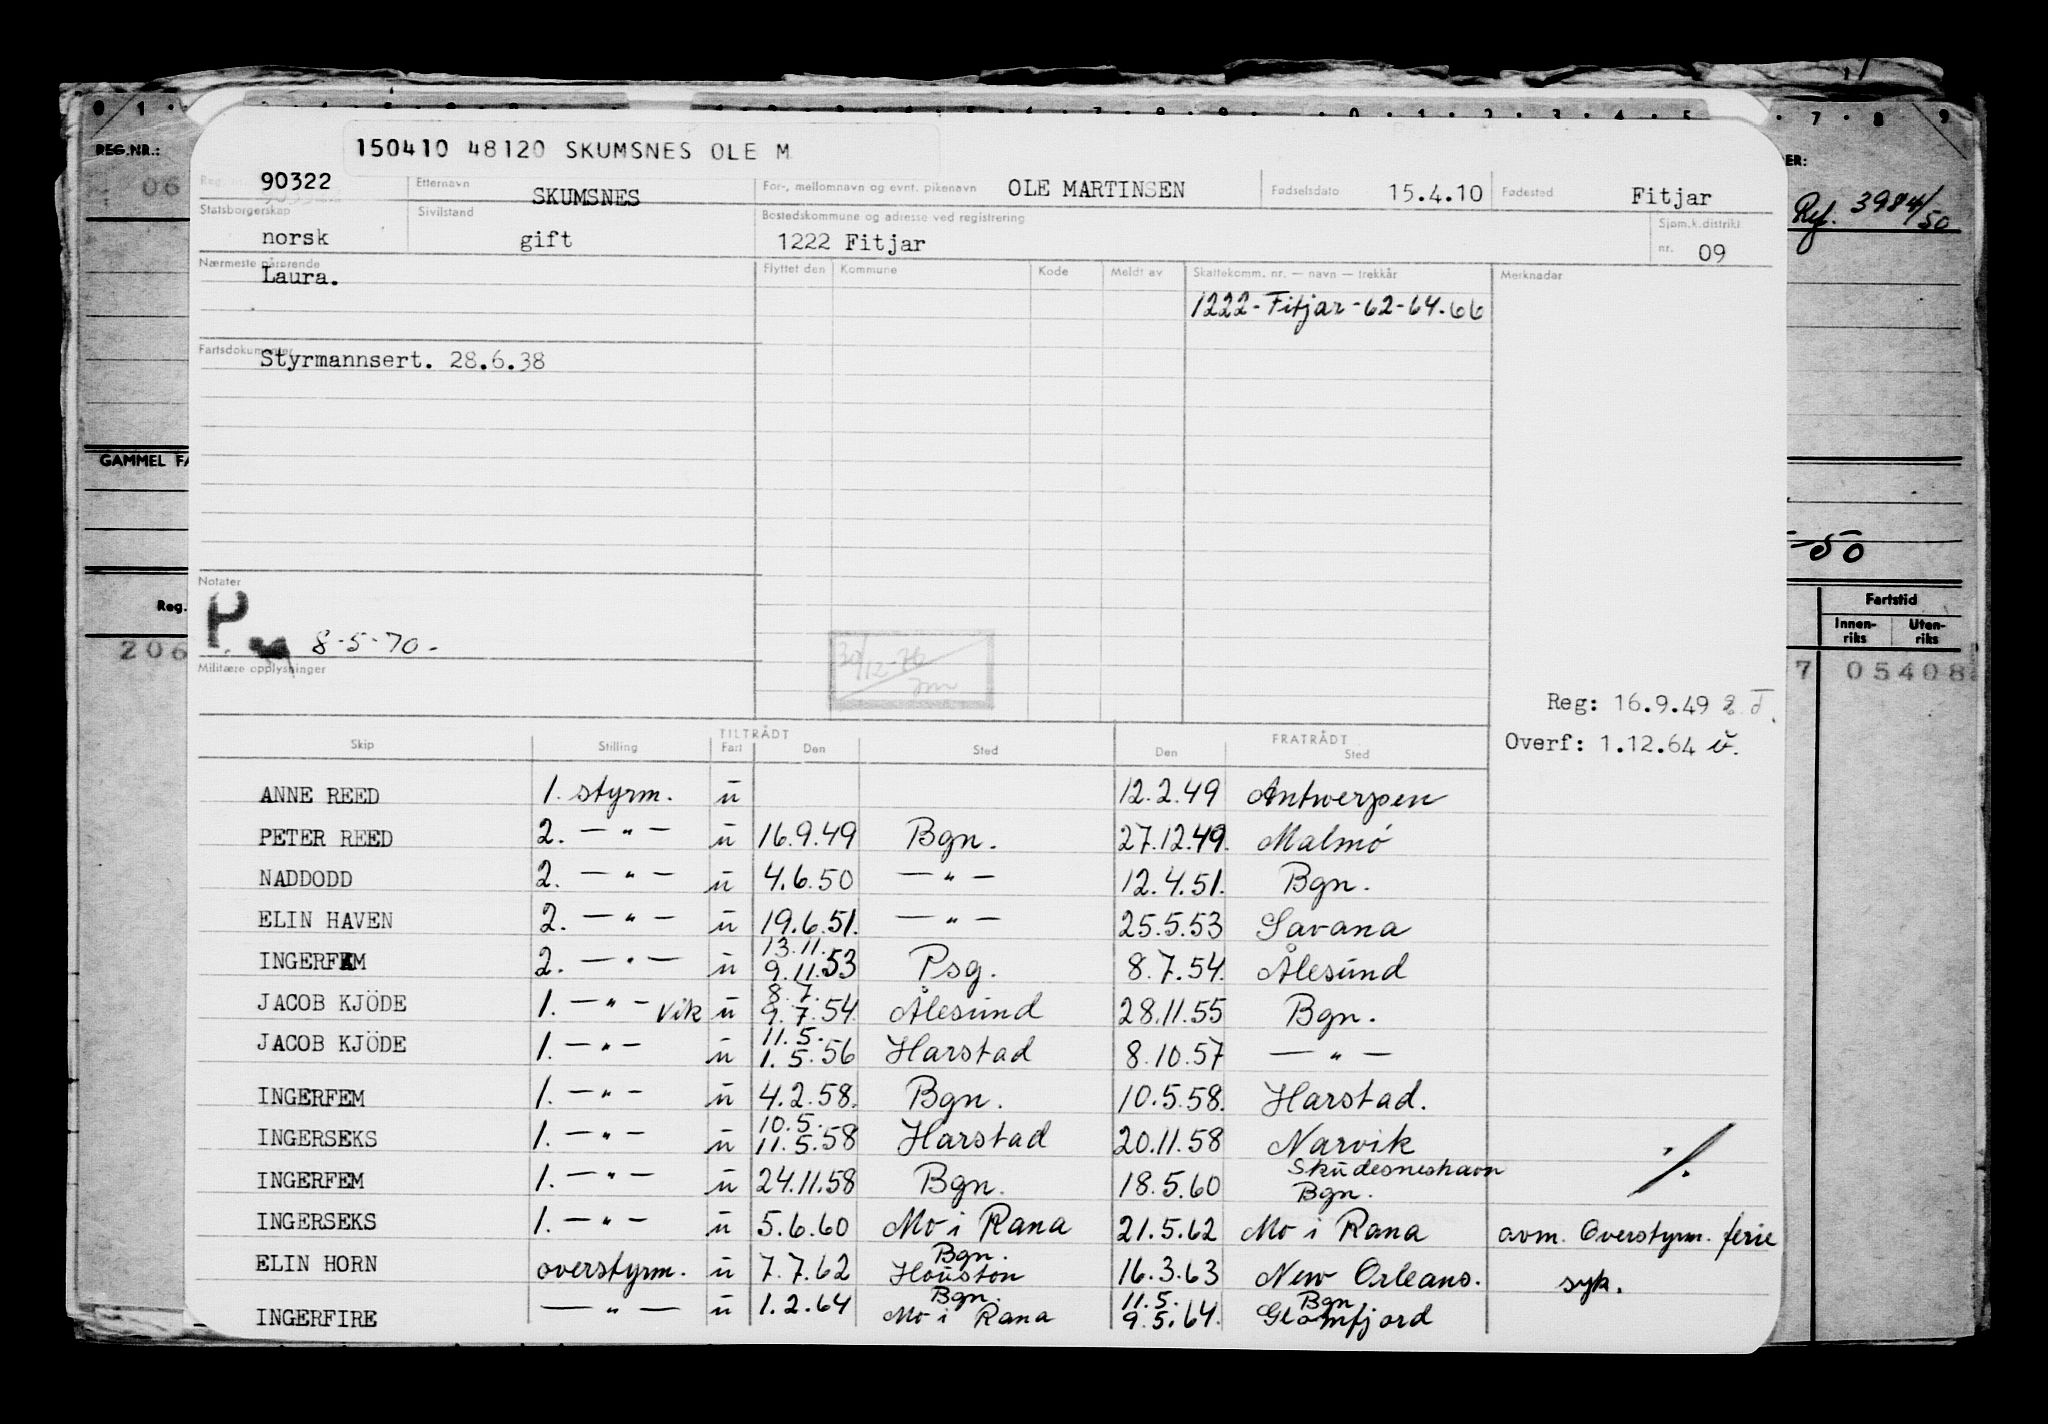 0 1 7 8 9
REG.NR.:
06
ER:
Ref. 3984/50
GAMMEL FA
-50
Reg.
206
Fartstid
Innen-riks Uten-riks
7 05408
150410 48120 SKUMSNES OLE M
90322 Etternavn SKUMSNES For-, mellomnavn og evnt. pikenavn OLE MARTINSEN Fødselsdato 15.4.10 Fødested Fitjar
Statsborgerskap norsk Sivilstand gift Bostedskommune og adresse ved registrering 1222 Fitjar Sjøm.k.distrikt nr. 09
Nærmeste pårørende Laura. Flyttet den Kommune Kode Meldt av Skattekomm. nr. — navn — trekkår Merknader
1222-Fitjar-62-64-66
Fartsdokumenter Styrmannsert. 28.6.38
Notater
P. 8-5-70-
30/12-76
Militære opplysninger
Reg: 16.9.49
Overf: 1.12.64
TILTRÅDT FRATRÅDT
Skip Stilling Fart Den Sted Den Sted
ANNE REED 1. styrm. u 12.2.49 Antwerpen
PETER REED 2. —"— u 16.9.49 Bgn. 27.12.49. Malmö
NADDODD 2. —"— u 4.6.50 —"— 12.4.51. Bgn.
ELIN HAVEN 2. —"— u 19.6.51. —"— 25.5.53 Savana
13.11.
INGERFEM 2. —"— u 9.11.53 Psg. 8.7.54. Ålesund
8.7.
JACOB KJÖDE 1. —"— vik u 9.7.54. Ålesund 28.11.55 Bgn.
11.5.
JACOB KJÖDE 1. —"— u 1.5.56 Harstad 8.10.57 —"—
INGERFEM 1. —"— u 4.2.58. Bgn. 10.5.58. Harstad.
10.5.
INGERSEKS 1. —"— u 11.5.58 Harstad 20.11.58 Narvik
Skudesneshavn
INGERFEM 1. —"— u 24.11.58 Bgn. 18.5.60 Bgn.
INGERSEKS 1. —"— u 5.6.60 Mo i Rana 21.5.62 Mo i Rana avm. Overstyrm. ferie
Bgn.
ELIN HORN overstyrm. u 7.7.62 Houston 16.3.63 New Orleans. syk.
Bgn. 11.5. Bgn
INGERFIRE —"— u 1.2.64 Mo i Rana 9.5.64. Glomfjord